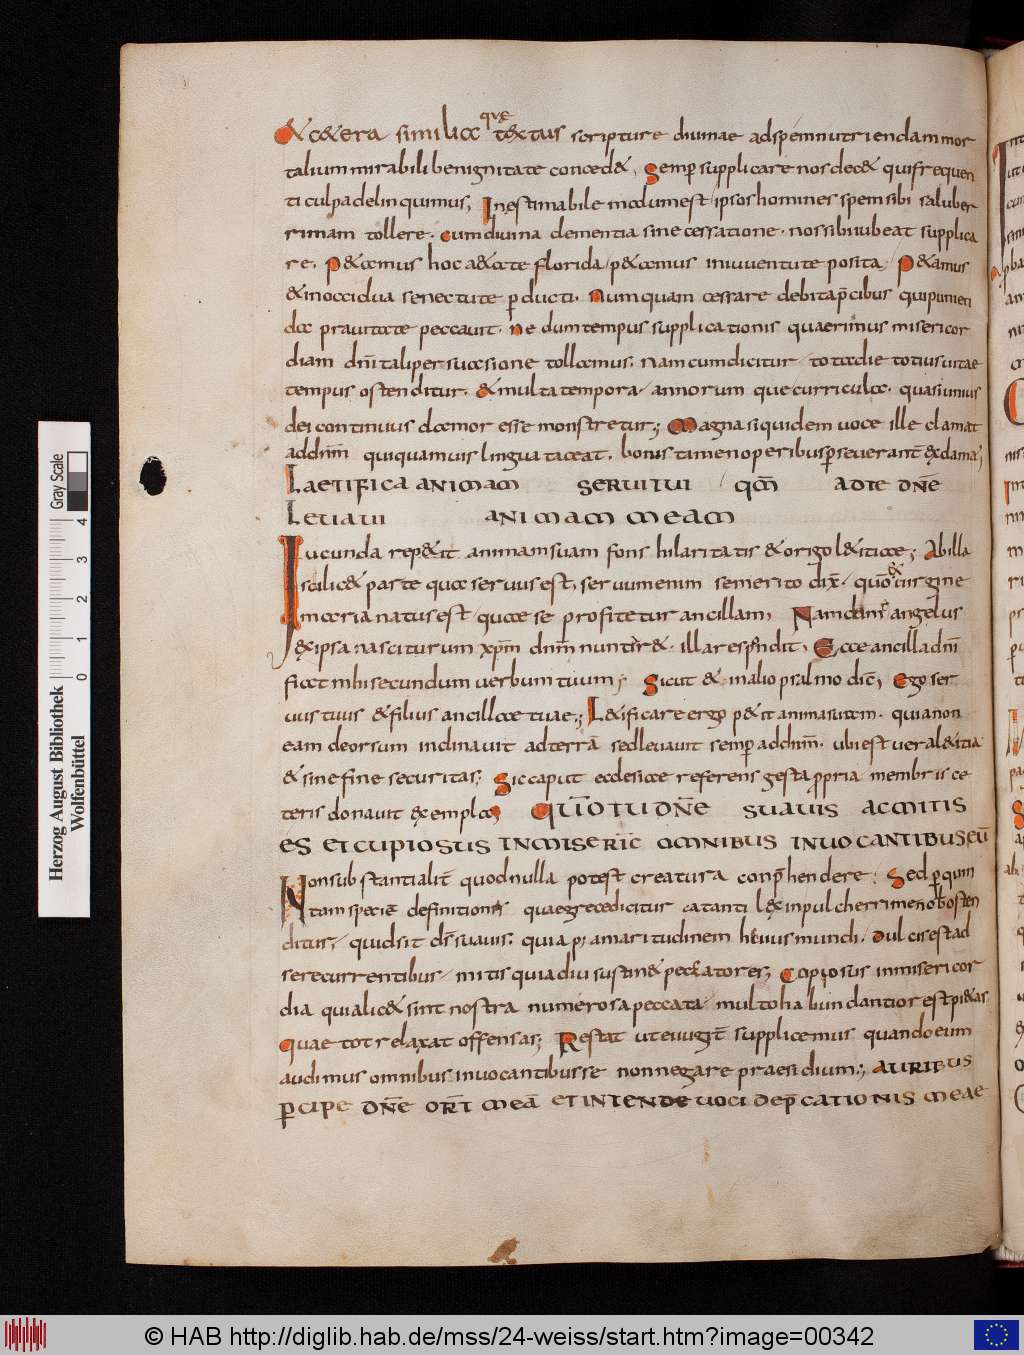 &c&era similia quę t&xtus scripture diuinae adspemnutriendammor
talium mirabili benignitate conced&, Semp supplicare nos dec& qui frequen
ti culpa delinquimus, Inęstimabile modum est ipsos homines spem sibi saluber
rimam tollere. cum diuina clementia sine cessatione. nos sibi iubeat supplica
re. P&amus hoc a&ate florida p&amus in iuuentute posita P&amus
& in occidua senectute pducti. Numquam cessare debita p̄cibus qui punien
da prauitate peccauit. Ne dum tempus supplicationis quaerimus misericor
diam dn̄i tali persuasione tollamus. Nam cum dicitur tota die totius uitae
tempus ostenditur. & multa tempora annorum que curricula. quasi unius
dei continuus clamor esse monstretur; Magna siquidem uoce ille clamat
ad dn̄m quiquamuis lingua taceat. bonis tamen operibus pseuerant̄ exclamat;
LAETIFICA ANIMAM SERUI TUI QM̄ AD TE DN̄E
LEUAUI ANIMAM MEAM
Iucunda rep&it animam suam fons hilaritatis & origo l&itiae; Ab illa
scilic& parte quae seruus est, seruum enim se merito dix̄. quō & uirgine
maria natus est quae se profitetur ancillam, Nam cum angelus
ex ipsa nasciturum xp̄m dn̄m nuntir&. illa respondit, Ecce ancilla dn̄i
fiat mihi secundum uerbum tuum; Sicut & in alio psalmo dic̄, Ego ser
uus tuus & filius ancillae tuae; L&ificare ergo p&it anima suam. quia non
eam deorsum inclinauit ad terrā sed leuauit semp ad dn̄m. ubi est uera l&itia
& sine fine securitas; Sic caput ecclesiae referens gesta ppria membris ce
teris donauit exemplos QUŌ TU DN̄E SUAUIS AC MITIS
ES ET CUPIOSUS IN MISERIC̄ OMNIBUS INUOCANTIBUS EŪ
Non substantialit̄ quod nulla potest creatura conp̄hendere; Sed p quan
tam specie definitionis quae grece dicitur cata anti lexin pulcherrime nobis osten
ditur, quid sit dn̄s suauis. quia p; amaritudinem huius mundi. Dulcis est ad
se recurrentibus mitis quia diu sustin& peccatores; Copiosus in misericor
dia quia lic& sint nostra numerosa peccata multo habundantior est pi&as
quae tot relaxat offensas; Restat ut euigit̄ supplicemus quando eum
audimus omnibus inuocantibus se non negare praesidium; AURIBUS
PCIPE DN̄E ORT̄ MEĀ ET INTENDE UOCI DEP̄CATIONIS MEAE
Herzog August Bibliothek
Wolfenbüttel
Gray Scale
0 1 2 3 4
© HAB http://diglib.hab.de/mss/24-weiss/start.htm?image=00342